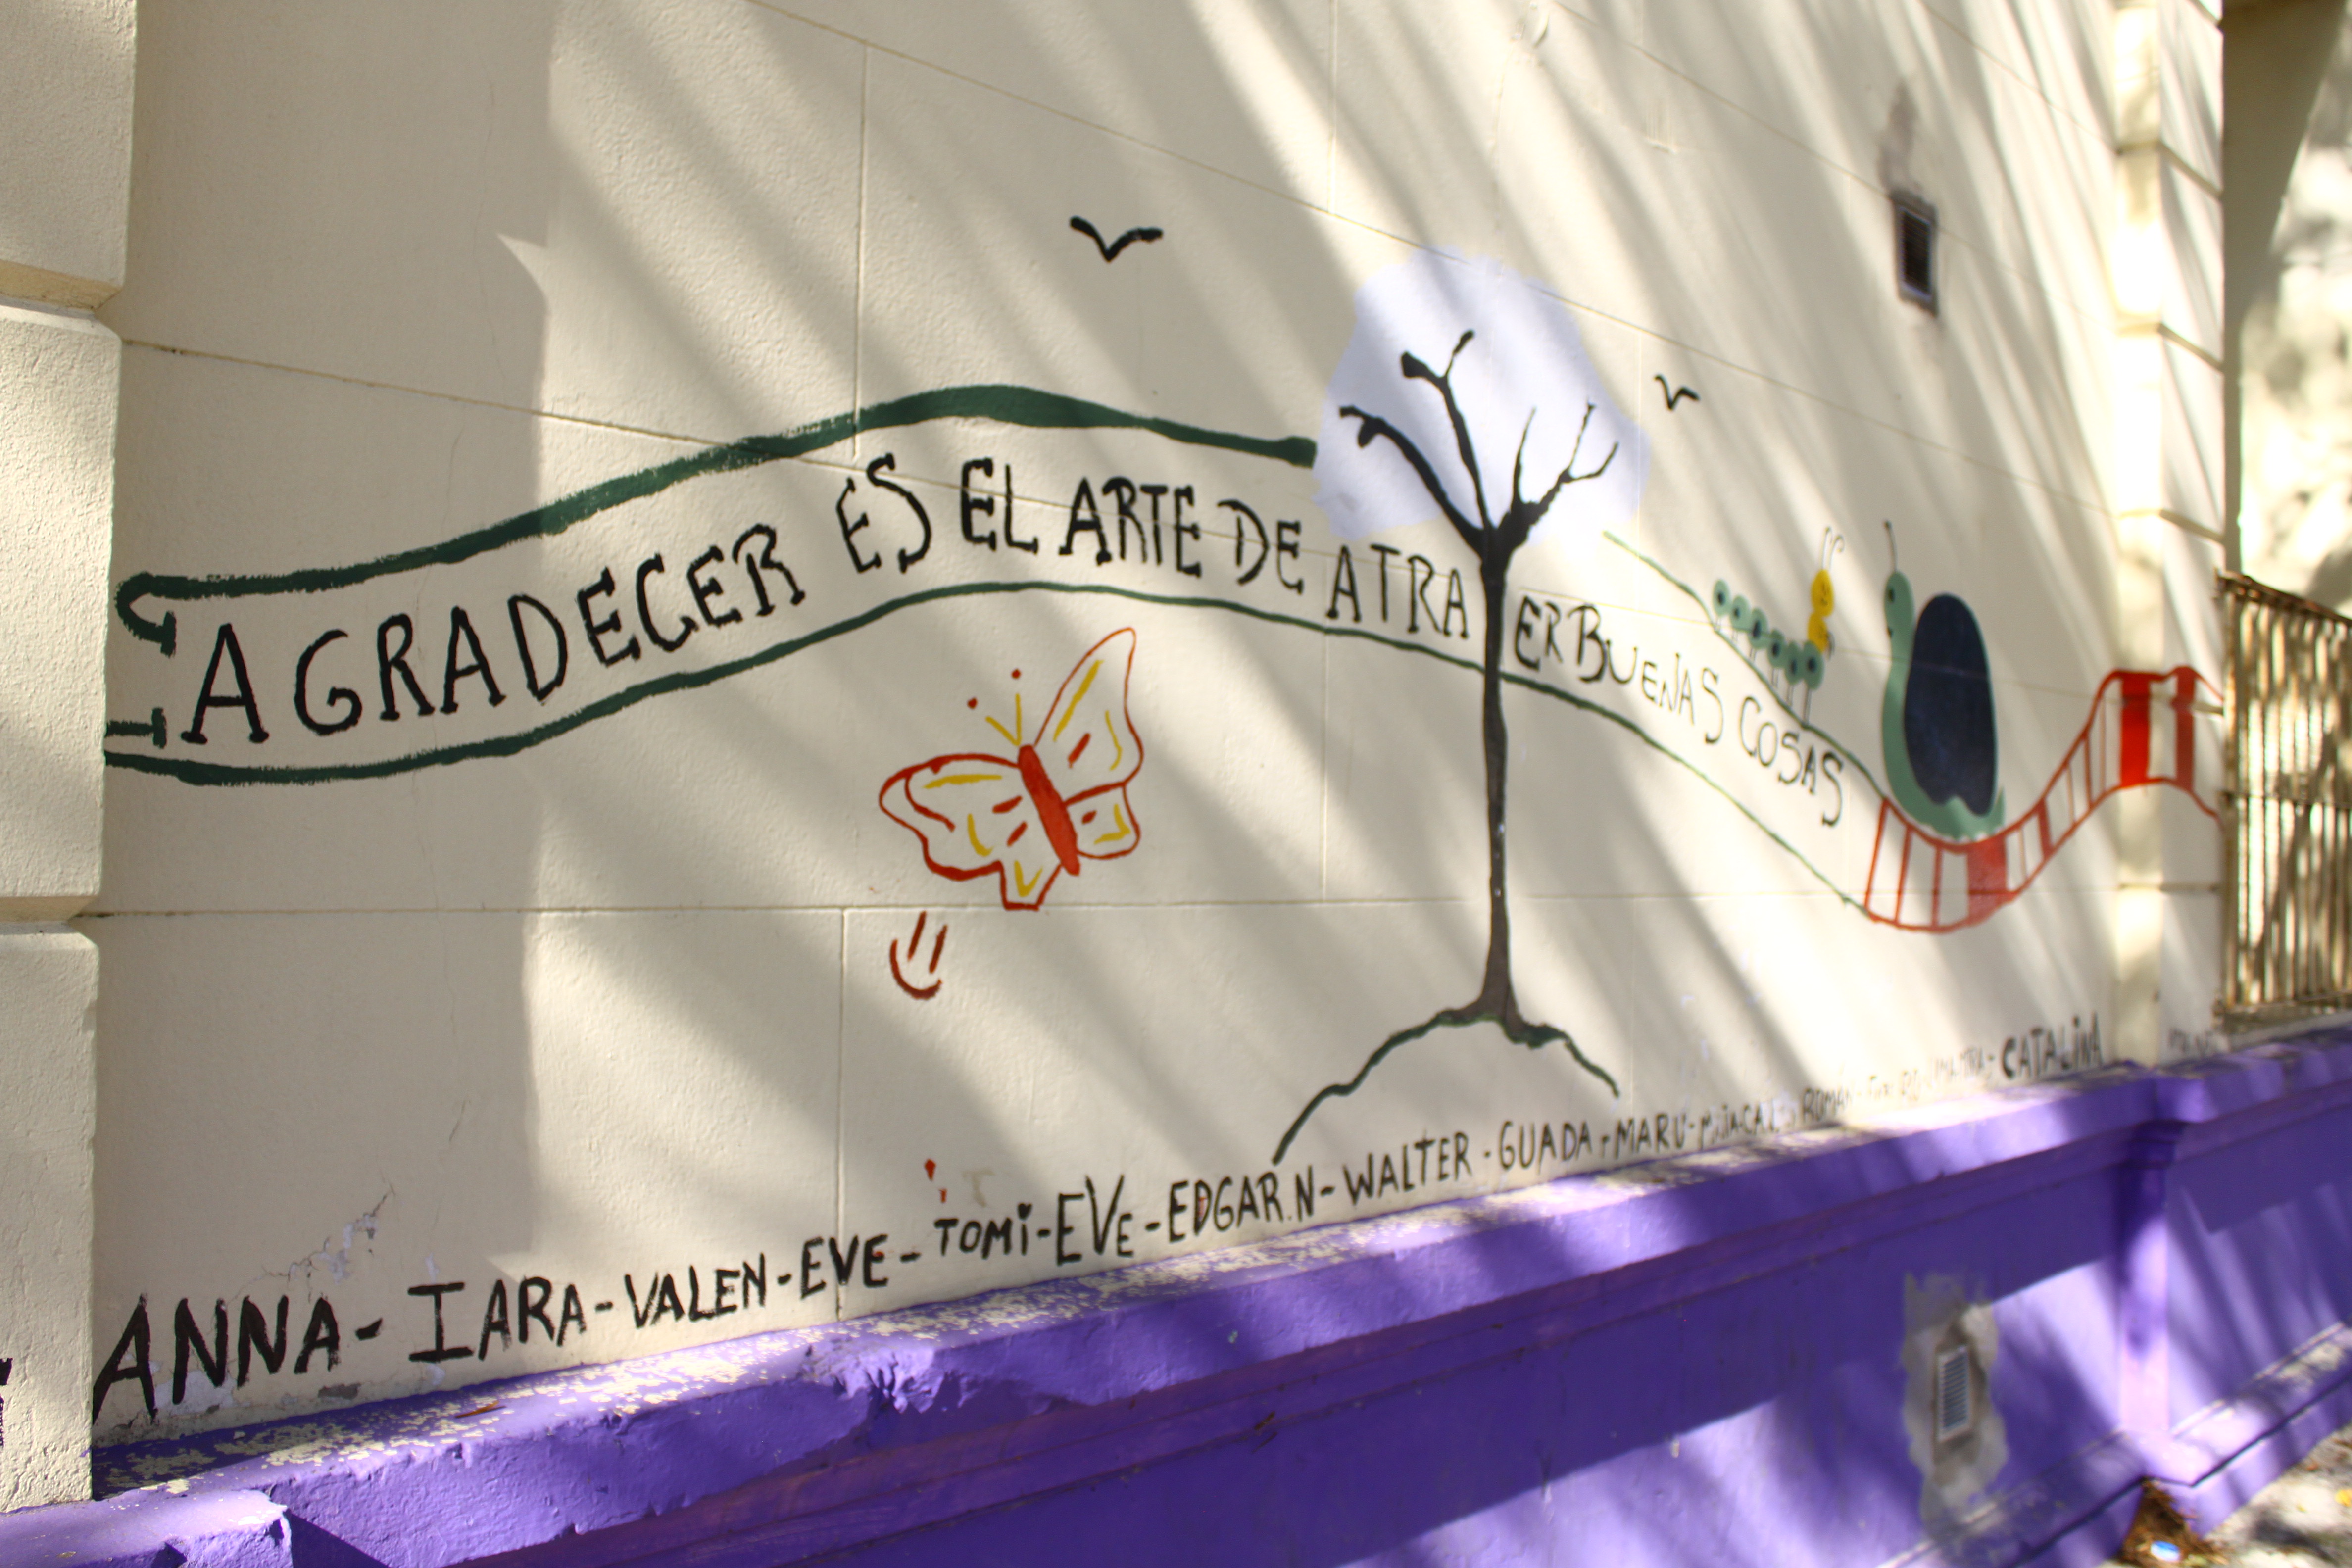 AGRADECER ES EL ARTE DE ATRAER BUENAS COSAS
ANNA - IARA - VALEN - EVE - TOMi - EVE - EDGAR.N - WALTER - GUADA - MARU - ROMAN - CATALiNA